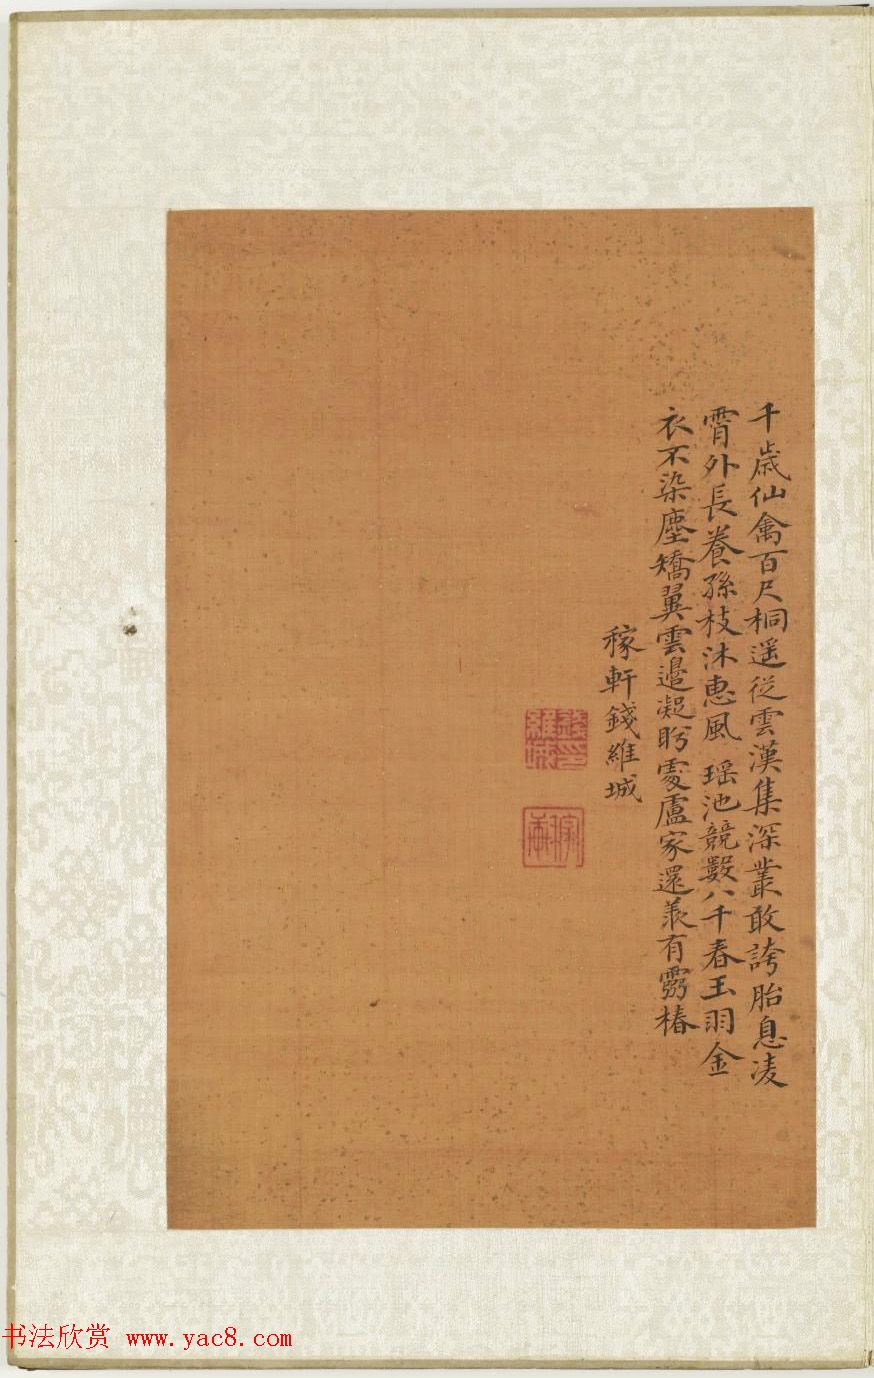 千歳仙禽百尺桐遥從雲漢集深叢敢誇胎息凌
霄外長養孫枝沐惠風 瑶池競數八千春玉羽金
衣不染塵矯翼雲邉凝眄處盧家還羨有靈椿
稼軒錢維城
錢維城印
稼軒
书法欣赏 www.yac8.com